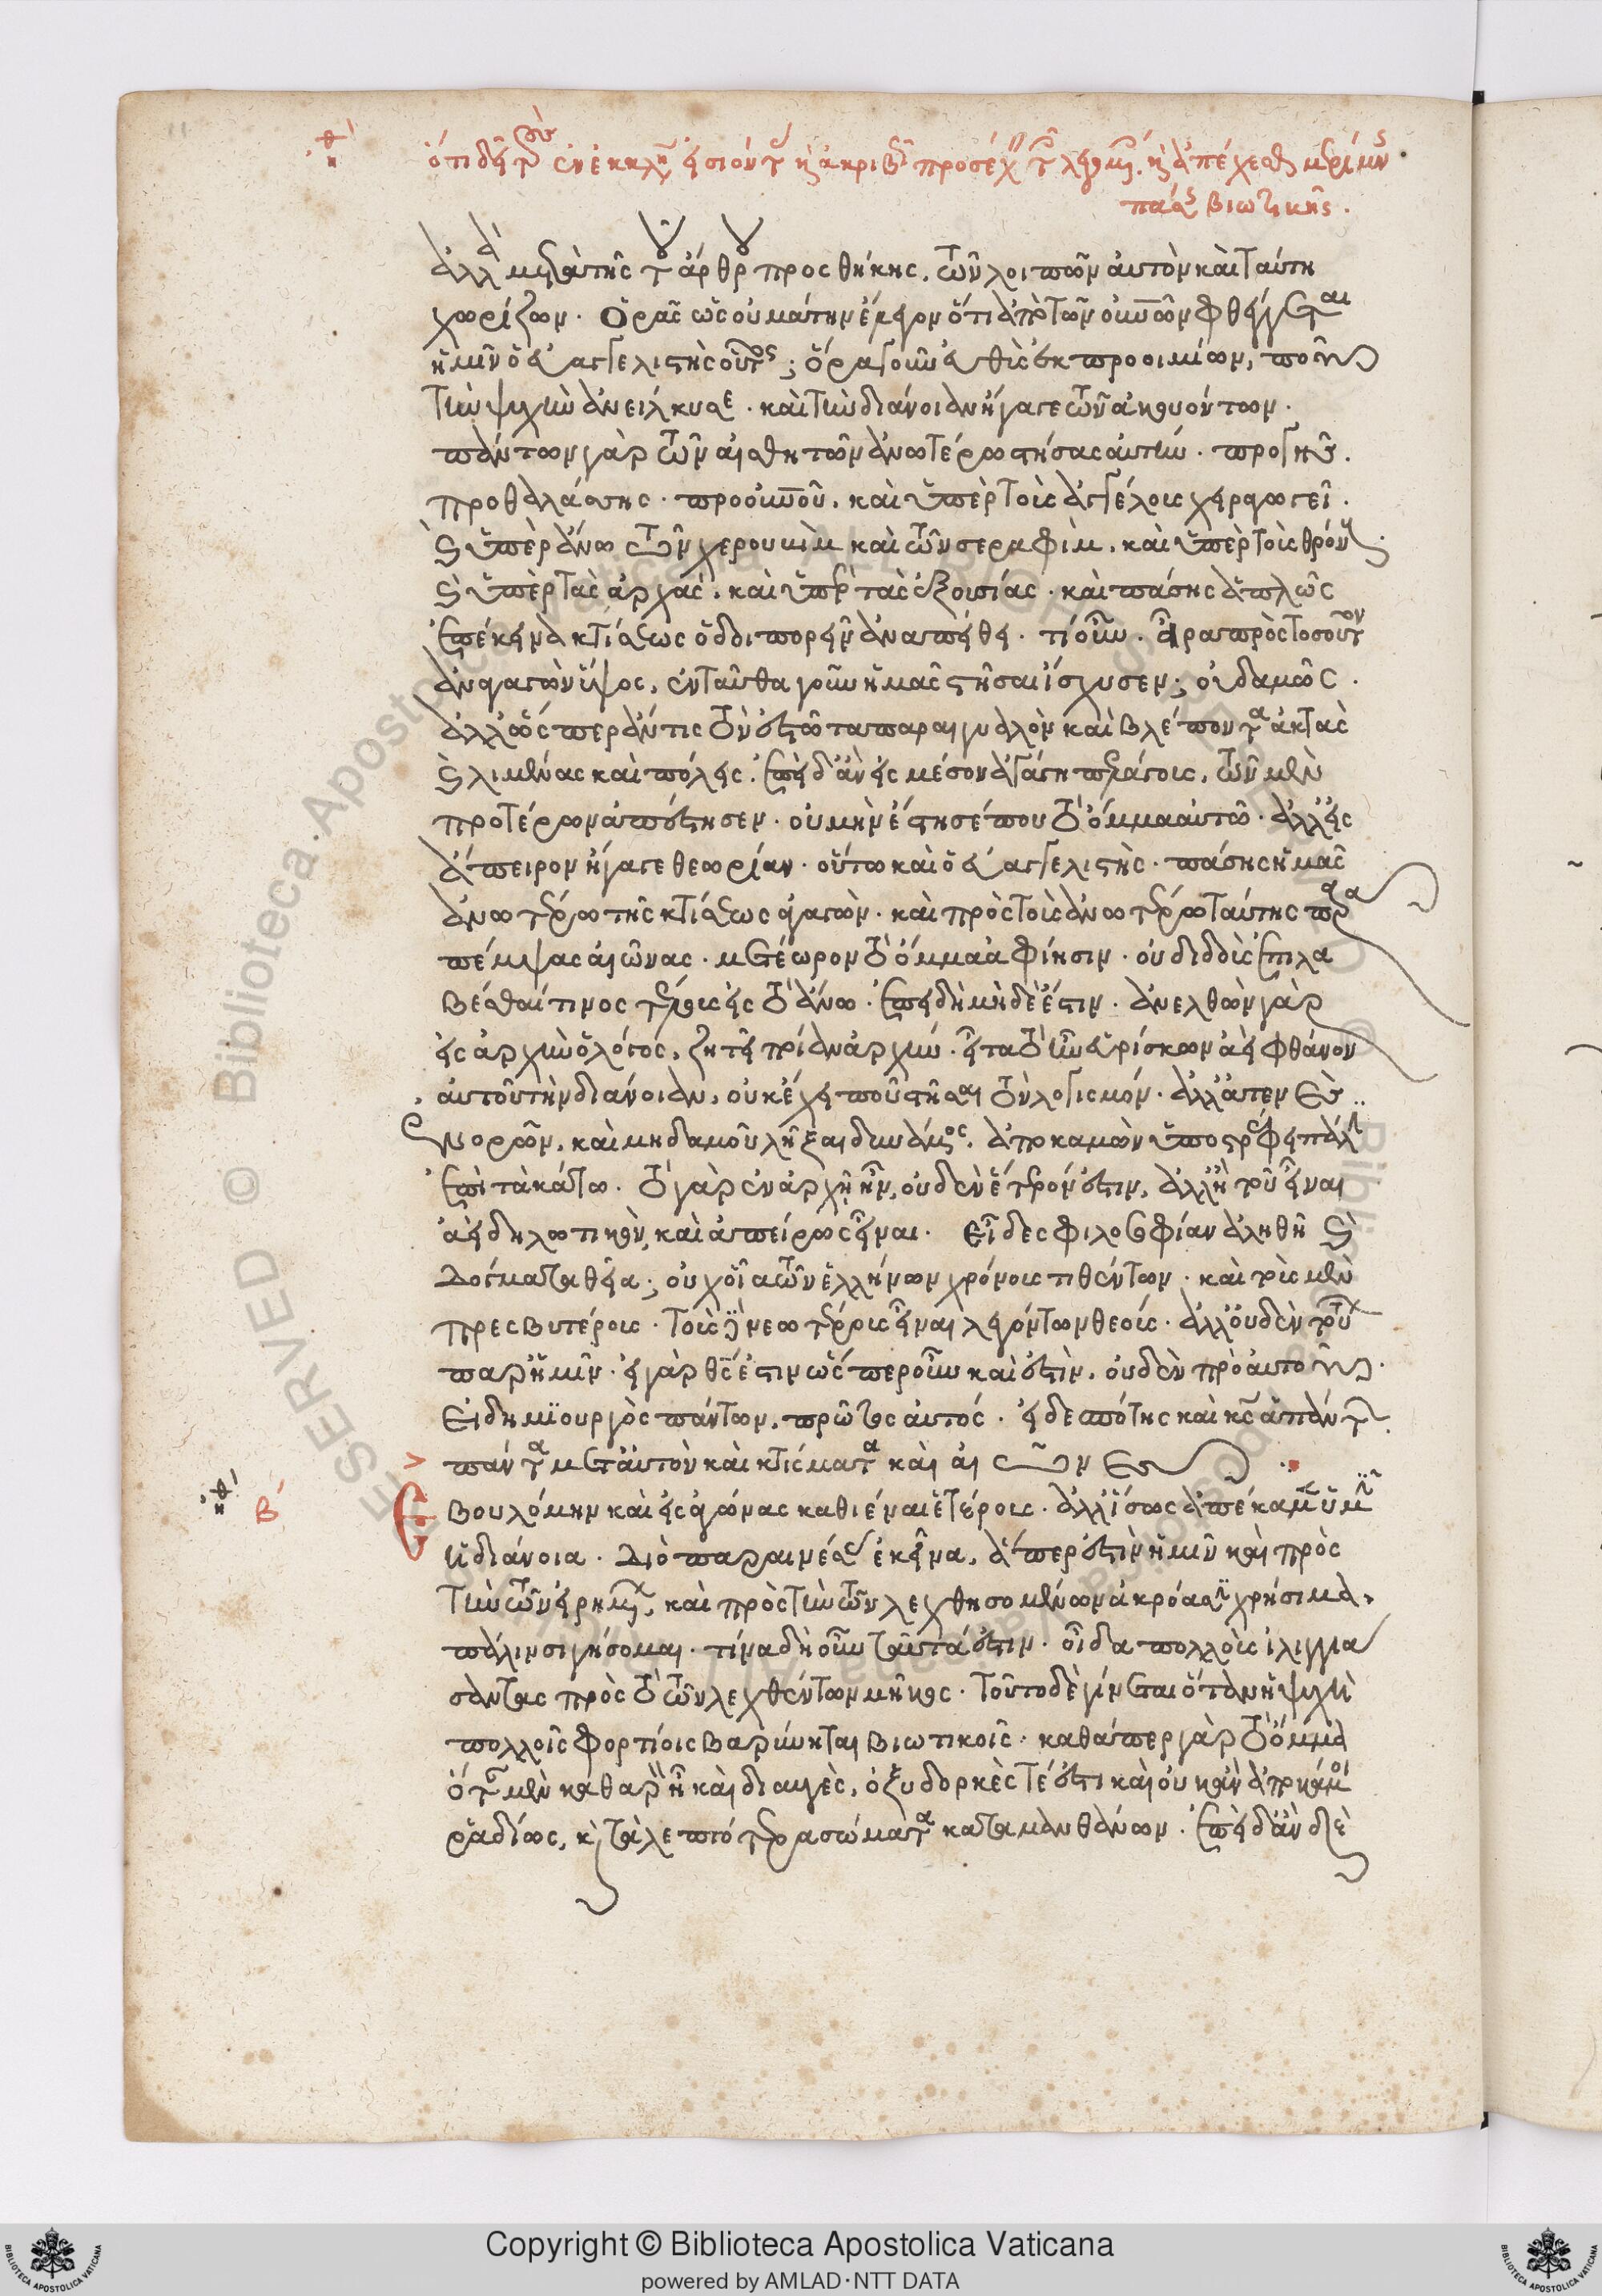 ὅτι δεῖ τὸν ἐν ἐκκλησίᾳ εἰσιόντα καὶ ἀκριβῶς προσέχειν τοῖς λεγομένοις. καὶ ἀπέχεσθαι μερίμνης
πάσης βιωτικῆς.
ἀλλὰ μετὰ τῆς τοῦ ἄρθρου προσθήκης, τῶν λοιπῶν αὐτὸν καὶ ταύτη
χωρίζων. Ὁρᾶς ὡς οὐ μάτην ἔλεγον ὅτι ἀπὸ τῶν οὐνῶν φθέγγεται
ἡμῖν ὁ εὐαγγελιστὴς οὗτος; ὅρα γοῦν εὐθὺς ἐκ προοιμίων, ποῦ
τὴν ψυχὴν ἀνείλκυσε. καὶ τὴν διάνοιαν ἤγαγε τῶν ἀκουόντων.
πάντων γὰρ τῶν αἰσθητῶν ἀνωτέρω στήσας αὐτὴν. προ γῆς.
προ θαλάσσης. προ οὐνοῦ. καὶ ὑπὲρ τοὺς ἀγγέλους χειραγωγεῖ.
καὶ ὑπὲρ ἄνω τῶν χερουβὶμ καὶ τῶν σεραφὶμ. καὶ ὑπὲρ τοὺς θρόνους.
καὶ ὑπὲρ τὰς ἀρχάς. καὶ ὑπὲρ τὰς ἐξουσίας. καὶ πάσης ἁπλῶς
ἐπέκεινα κτίσεως ὁδοιπορεῖν ἀναπείθει. τί οὖν. ἆρα πρὸς τοσοῦτον
ἀναγαγὼν ὕψος, ἐνταῦθα γοῦν ἡμᾶς στῆσαι ἴσχυσεν; οὐδαμῶς.
ἀλλ' ὥσπερ ἄν τις τὸν ἑστῶτα παρ' αἰγιαλὸν καὶ βλέποντα ἀκτὰς
καὶ λιμένας καὶ πόλεις. ἐπειδὰν εἰς μέσον ἀγάγη πέλαγος, τῶν μὲν
προτέρων ἀπέστησεν. οὐ μὴν ἔστησέ που τὸ ὄμμα αὐτοῦ. ἀλλ' εἰς
ἄπειρον ἤγαγε θεωρίαν. οὕτω καὶ ὁ εὐαγγελιστὴς. πάσης ἡμᾶς
ἀνωτέρω τῆς κτίσεως ἀγαγὼν. καὶ πρὸς τοὺς ἀνωτέρω ταύτης παρα
πέμψας αἰῶνας. μετέωρον τὸ ὄμμα ἀφίησιν. οὐ διδοὺς ἐπιλα
βέσθαι τινος τέλους εἰς τὸ ἄνω. ἐπειδὴ μὴ δὲ ἔστιν. ἀνελθὼν γὰρ
εἰς ἀρχὴν ὁ λόγος, ζητεῖ ποίαν ἀρχήν. εἶτα τὸ ἦν εὑρίσκων ἀεὶ φθάνον
αὐτοῦ τὴν διάνοιαν, οὐκ ἔχει ποῦ στῆσαι τὸν λογισμόν. ἀλλ' ἀτενὲς
ἐνορῶν, καὶ μηδαμοῦ λῆξαι δυνάμενος. ἀποκαμὼν ὑποστρέφει πάλιν
ἐπὶ τὰ κάτω. τὸ γὰρ ἐν ἀρχῆ ἦν, οὐδὲν ἕτερόν ἐστιν, ἀλλ' ἢ τοῦ εἶναι
ἀεὶ δηλωτικὸν, καὶ ἀπείρως εἶναι. Εἶδες φιλοσοφίαν ἀληθῆ καὶ
δόγματα θεῖα; οὐχ οἷα τῶν ἑλλήνων χρόνους τιθέντων. καὶ τοὺς μὲν
πρεσβυτέρους. τοὺς δὲ νεωτέρους εἶναι λεγόντων θεούς. ἀλλ' οὐδὲν τοιοῦτον
παρ' ἡμῖν. εἰ γὰρ θς ἔστιν ὥσπερ οὖν καὶ ἐστὶν, οὐδὲν πρὸ αὐτοῦ.
Εἰ δημιουργὸς πάντων, πρῶτος αὐτός. εἰ δεσπότης καὶ κς ἁπάντων.
πάντα μετ' αὐτὸν καὶ κτίσματα καὶ αἰῶνες
Ἐβουλόμην καὶ εἰς ἀγῶνας καθιέναι ἑτέρους. ἀλλ' ἴσως ἀπέκαμεν ὑμῖν
ἡ διάνοια. Διὸ παραινέσας ἐκεῖνα, ἅπερ ἐστὶν ἡμῖν καὶ πρὸς
τὴν τῶν εἰρημένων, καὶ πρὸς τὴν τῶν λεχθησομένων ἀκρόασιν χρήσιμα,
πάλιν σιγήσομαι. τίνα δὴ οὖν ταῦτά ἐστιν. οἶδα πολλοὺς ἰλιγγιά
σαντας πρὸς τὸ τῶν λεχθέντων μῆκος. τοῦτο δὲ γίνεται ὅταν ἡ ψυχὴ
πολλοῖς φορτίοις βαρύνηται βιωτικοῖς. καθάπερ γὰρ τὸ ὄμμα
ὅταν μὲν καθαρὸν ἦ καὶ διαυγὲς, ὀξυδορκές τέ ἐστι καὶ οὐκ ἂν ἀποκάμοι
ῥαδίως, καὶ τὰ λεπτότερα σώματα καταμανθάνων. ἐπειδὰν δὲ
Β΄